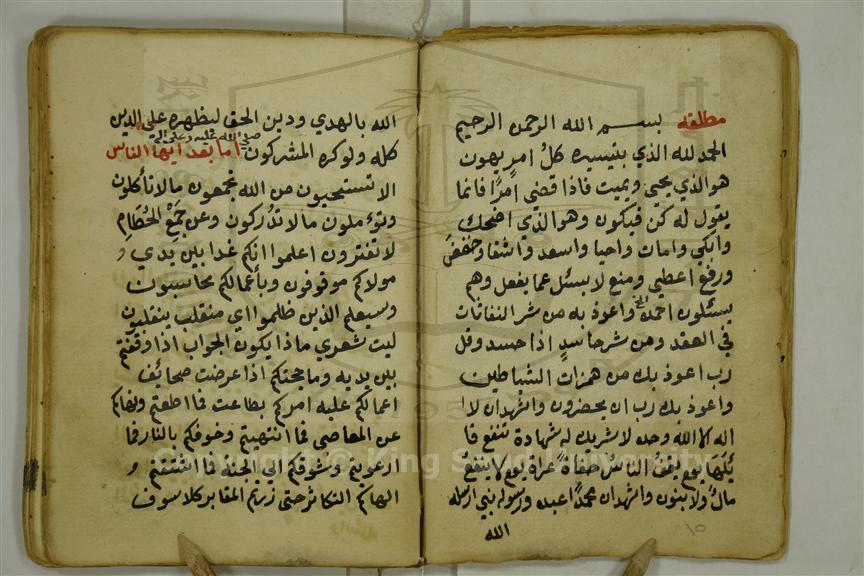 مطلقه بسم الله الرحمن الرحيم
الحمد لله الذي بتيسيره كل امر يهون
هو الذي يحيي ويميت فاذا قضى امرًا فانما
يقول له كن فيكون وهو الذي اضحك
وابكي وامات واحيا واسعد واشقا وخفض
ورفع اعطي ومنع لا يسئل عما يفعل وهم
يسئلون احمده واعوذ به من شر النفاثات
في العقد ومن شر حاسد اذا حسد وقل
رب اعوذ بك من همزات الشياطين
واعوذ بك رب ان يحضرون واشهد ان لا ا
اله الا الله وحده لا شريك له شهادة تنفع قا
ئلها يوم يقف الناس حفاة عراة يوم لا ينفع
مال ولا بنون واشهد ان محمدا عبده ورسوله نبي ارسله
الله
١٥
الله بالهدي ودين الحق ليظهره على الدين
كله ولو كره المشركون صلى الله عليه وعلى اله اما بعد ايها الناس
الا تستحيون من الله تجمعون مالا تأكلون
وتوءملون مالا تدركون وعن جمع الحطام
لا تفترون اعلموا انكم غدا بين يدي و
مولاكم موقوفون وبأعمالكم محاسبون
وسيعلم الذين ظلموا اي منقلب ينقلبون
ليت شعري ماذا يكون الجواب اذا وقفتم
بين يديه وما حجتكم اذا عرضت صحائف
اعمالكم عليه امركم بطاعت فما اطعتم ونهاكم
عن المعاصي فما انتهيتم وخوفكم بالنار فما
ارعويتم وشوقكم الي الجنه فما اشتقتم و
الهاكم التكاثر حتى زرتم المقابر كلا سوف
Copyright © King Saud University